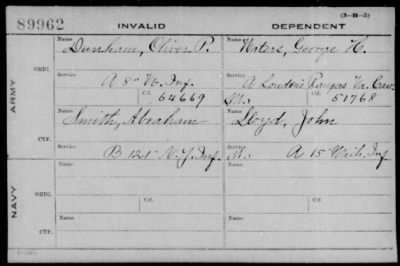 89962
INVALID
DEPENDENT
(3-14-3)
ARMY
NAVY
ORIG.
CTF.
ORIG.
CTF.
Name
Dunham, Oliver P.
Service
A 8" Inf.
Ctf.
64669
Name
Smith, Abraham
Service
B 121" N.Y. Inf.
Name
Service
Ctf.
Name
Service
Name
George H.
Service
A Loudon Rangers Va. Cav.
Ctf.
51768
Name
Lloyd, John
Service
A 15" Inf
Name
Service
Ctf.
Name
Service